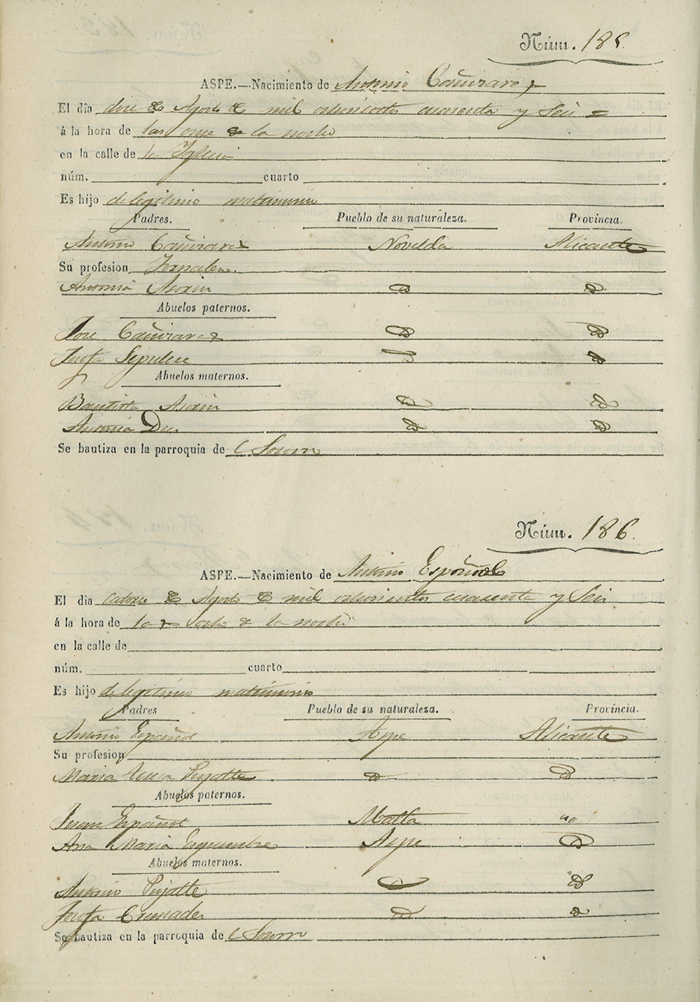 Núm. 185.
ASPE.—Nacimiento de Antonio Cañizares
El dia doce de Agosto de mil ochocientos cuarenta y Seis =
á la hora de las once de la noche
en la calle de la Iglesia
núm. cuarto
Es hijo de legitimo matrimonio
Padres. Pueblo de su naturaleza. Provincia.
Antonio Cañizares Novelda Alicante
Su profesion Jornalero
Antonia
Abuelos paternos.
Jose Cañizares
Josefa
Abuelos maternos.
Bautista
Antonia
Se bautiza en la parroquia de El Socorro
Núm. 186.
ASPE.—Nacimiento de Antonio Español
El dia catorce de Agosto de mil ochocientos cuarenta y Seis
á la hora de las de la noche
en la calle de
núm. cuarto
Es hijo de legitimo matrimonio
Padres Pueblo de su naturaleza. Provincia.
Antonio Español Aspe Alicante
Su profesion
Maria Teresa Pujalte
Abuelos paternos.
Juan Español Malta
Ana Maria Aspe
Abuelos maternos.
Antonio Pujalte
Josefa Cremades
Se bautiza en la parroquia de El Socorro